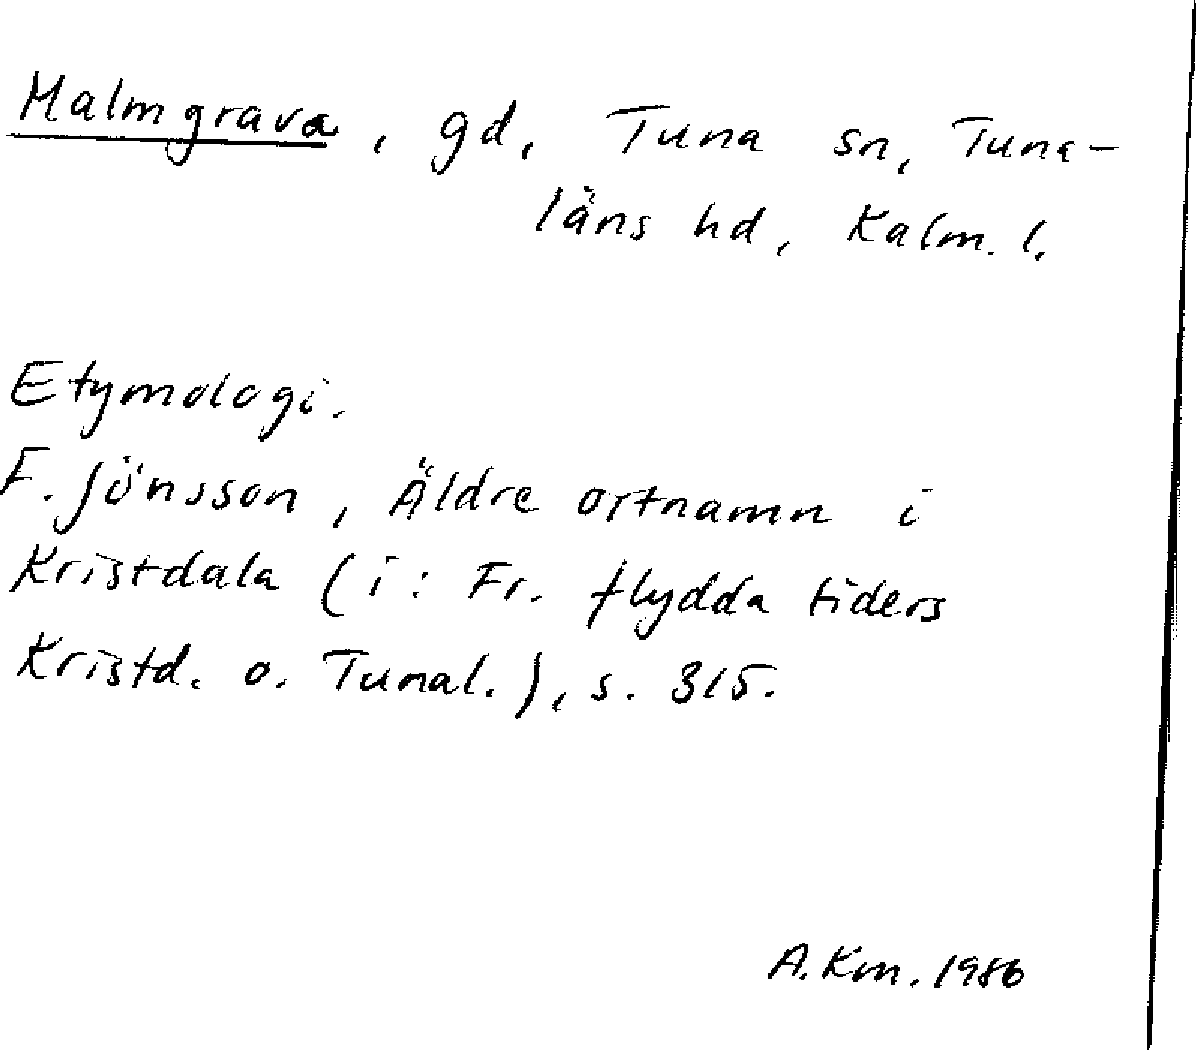 Malmgrava, gd, Tuna sn, Tuna-
läns hd, Kalm. l.
Etymologi.
F. Jönsson, Äldre ortnamn i
Kristdala (i: Fr. flydda tiders
Kristd. o. Tunal.), s. 315.
A. Km. 1986